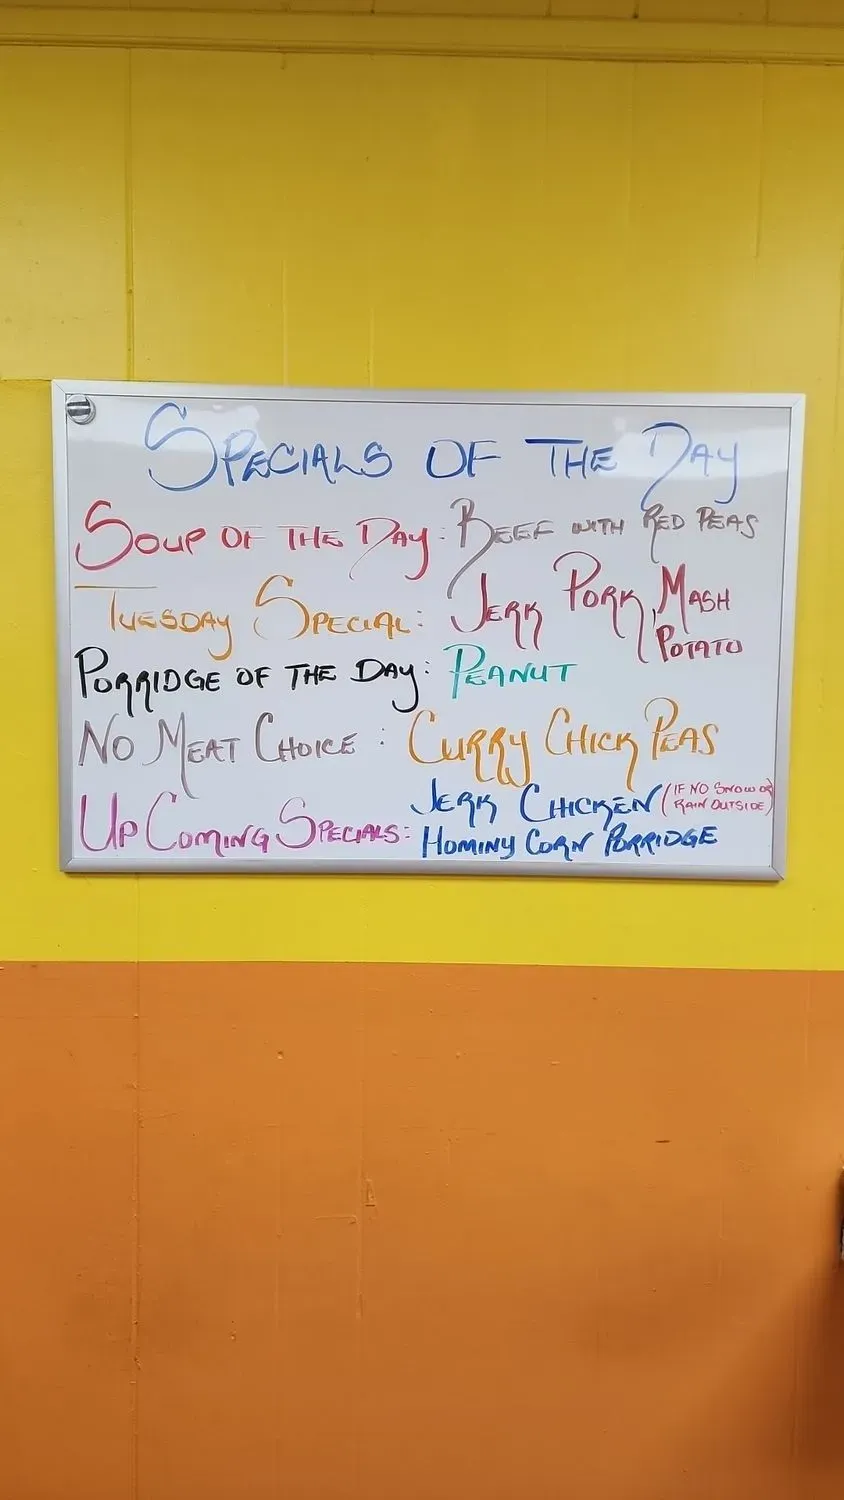 SPECIALS OF THE DAY
SOUP OF THE DAY: BEEF WITH RED PEAS
TUESDAY SPECIAL: JERK PORK, MASH
POTATO
PORRIDGE OF THE DAY: PEANUT
NO MEAT CHOICE: CURRY CHICK PEAS
UP COMING SPECIALS: JERK CHICKEN (IF NO SNOW OR
RAIN OUTSIDE)
HOMINY CORN PORRIDGE